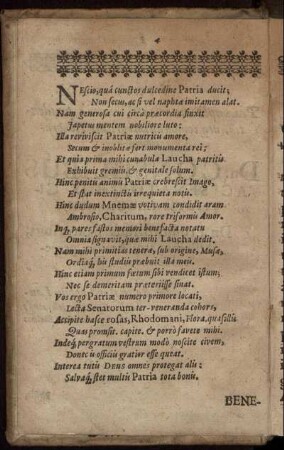 NEscio, quâ cunctos dulcedine Patria ducit,
Non secus, ac si vel naphta imitamen alat.
Nam generosa cui circà præcordia finxit
Japetus mentem nobiliore luto:
Illa reviviscit Patriæ nutrita amore,
Secum & indolitæ fert monumenta rei;
Et quia prima mihi cunabula Laucha patritis
Exhibuit gremiis, & genitale solum.
Hinc penitu animū Patriæ crebrescit Imago,
Et stat inextinctis irrequieta notis.
Hinc dudum Mnemæ votivam condidit aram
Ambrosio, Charitum, rore trisormis Amor.
Inq́, pares fastos memori benefacta notatu
Omnia signavit, quæ mihi Laucha dedit.
Nam mihi primitias teneræ, sub origine, Musæ,
Ordiaq́, his studiis præbuit illa meis.
Hinc etiam primum fœtum sibi vendicet istum,
Nec se demeritam præteriisse sinat.
Vos ergò Patriæ numero primore locati,
Lecta Senatorum ter-veneranda cohors,
Accipite hasce rosas, Rhodomani, Hora, quasillis
Quas promsit. capite. & porrò favete mihi.
Indeq́, pergratum vestrum modò noscite civem,
Donec is officiis gratior esse queat.
Interea tutis Deus omnes protegat alis;
Salvaq́, stet multis Patria tota bonis.
BENE-